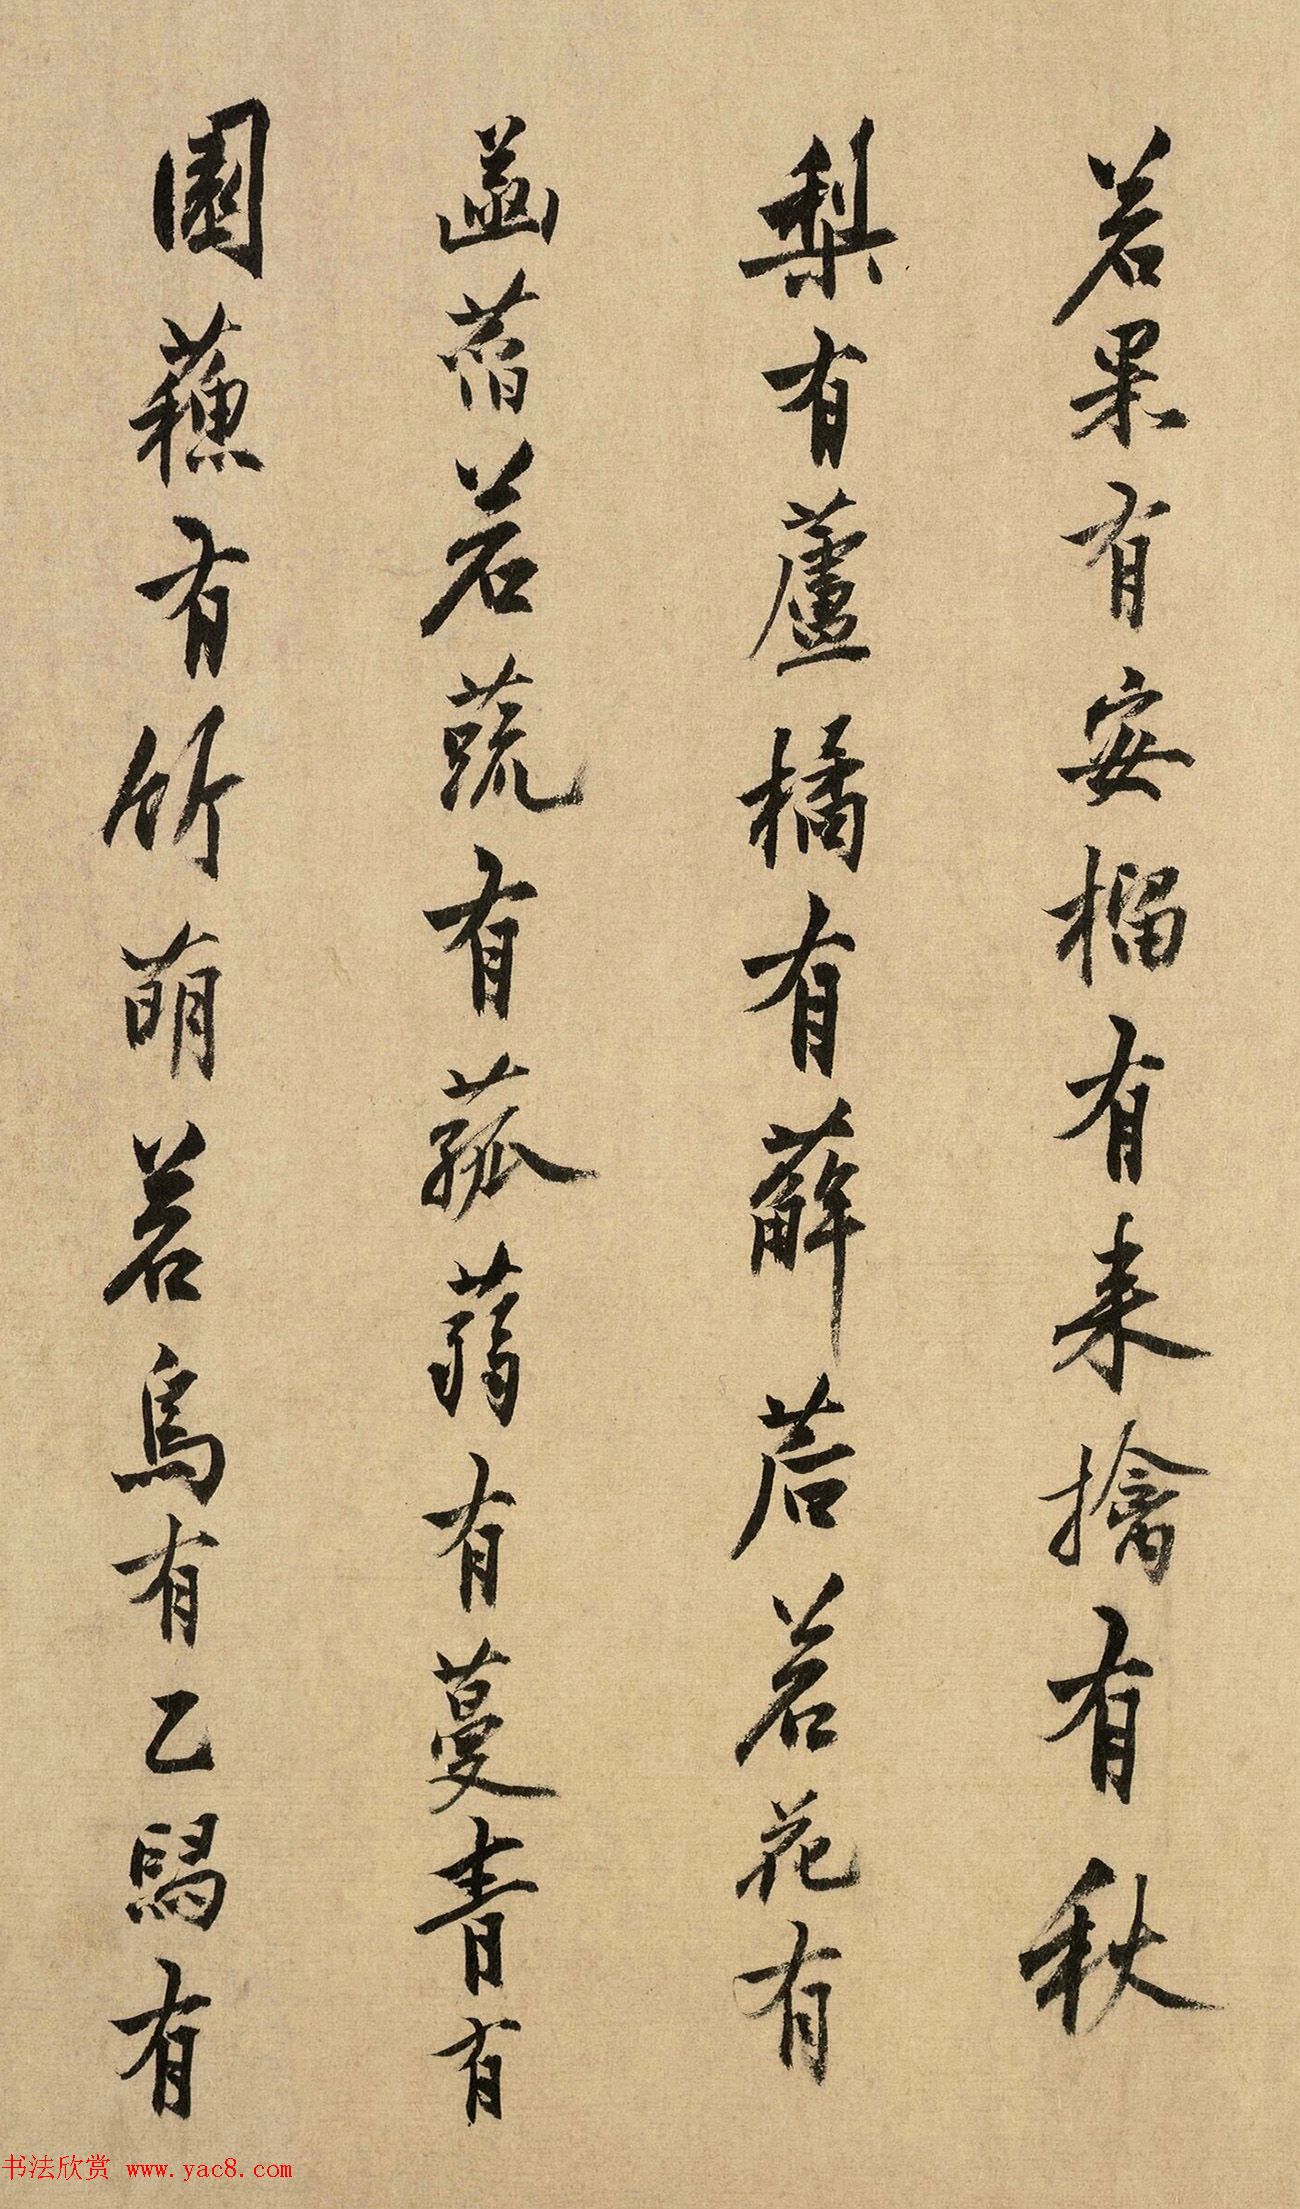 若果有安榴有来擒有秋
梨有蘆橘有薢茩若花有
菡萏若蔬有菰蒻有蔓青有
園蘓有竹萌若鳥有乙舄有
书法欣赏 www.yac8.com